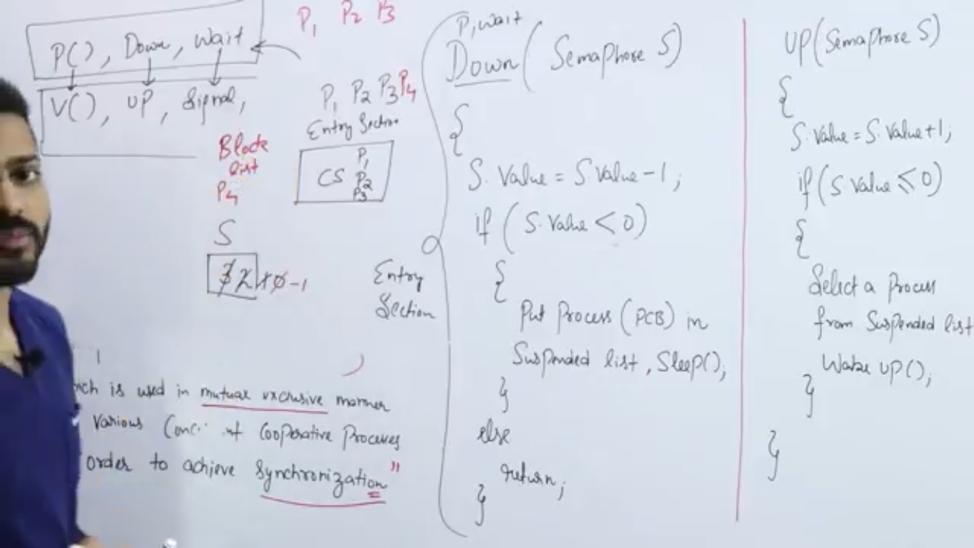 P(), Down, Wait
V(), UP, Signal,
P1 P2 P3
P1 P2 P3 P4
Entry Section
CS P1
P2
P3
Block
list
P4
S
3 2 1 0 -1
which is used in mutual exclusive manner
various cooperative Processes
order to achieve Synchronization"
Entry
Section
P, wait
Down (Semaphore S)
{
S. Value = S Value - 1;
if (S. Value < 0)
{
Put Process (PCB) in
Suspended list, Sleep();
}
else
return;
}
UP (Semaphore S)
{
S. Value = S. Value + 1;
if (S Value ≤ 0)
{
Select a Process
from Suspended list
Wake UP();
}
}